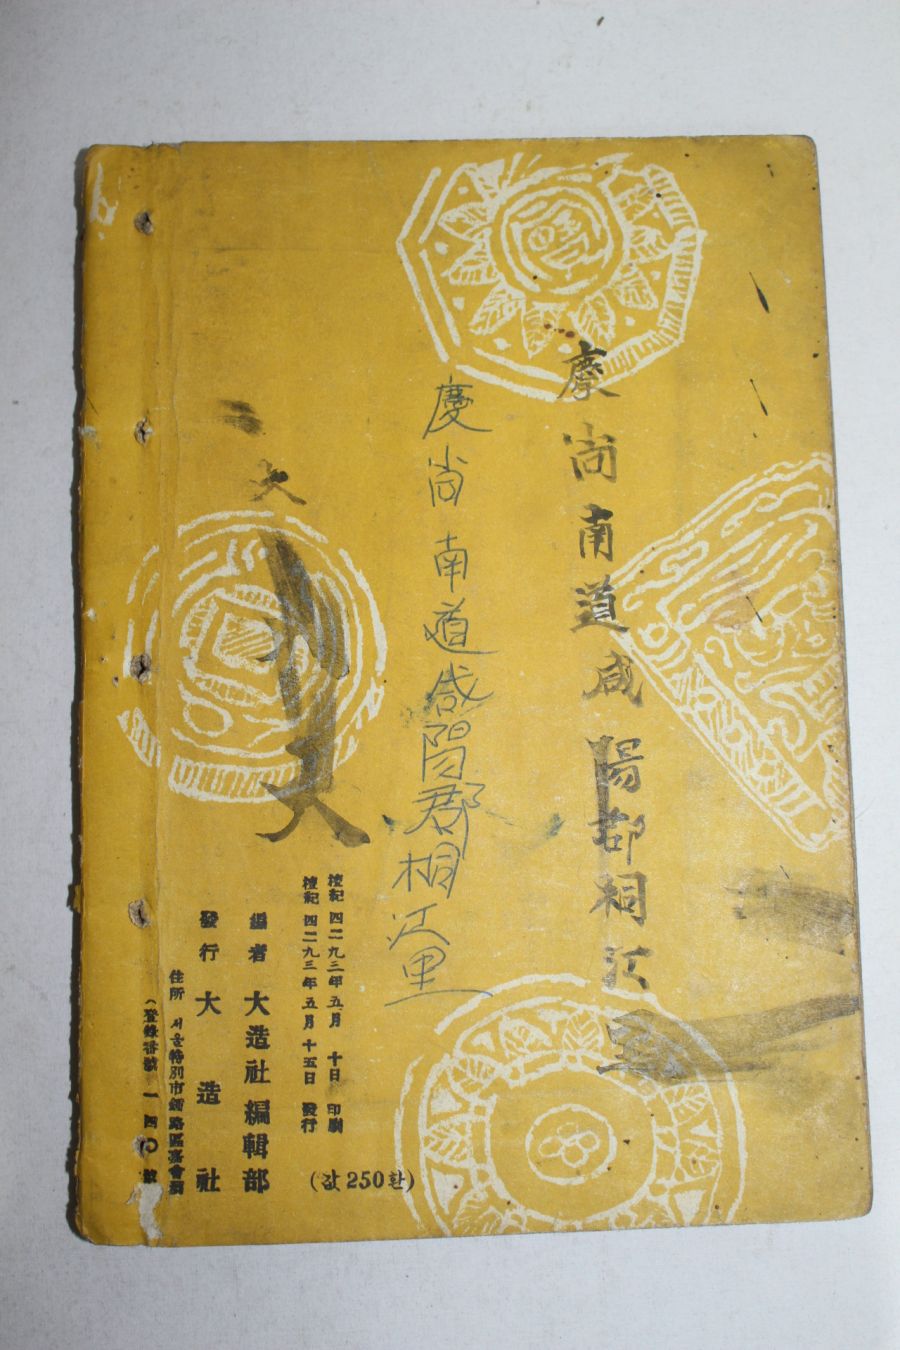 慶尚南道咸陽郡桐江里
慶尚南道咸陽郡桐江里
二
大
檀紀 四二九三年五月 十日 印刷
檀紀 四二九三年五月十五日 發行
編者 大造社編輯部
發行 大造社
住所 서울特別市鍾路區嘉會洞
(登錄番號 一四〇號
(값 250환)